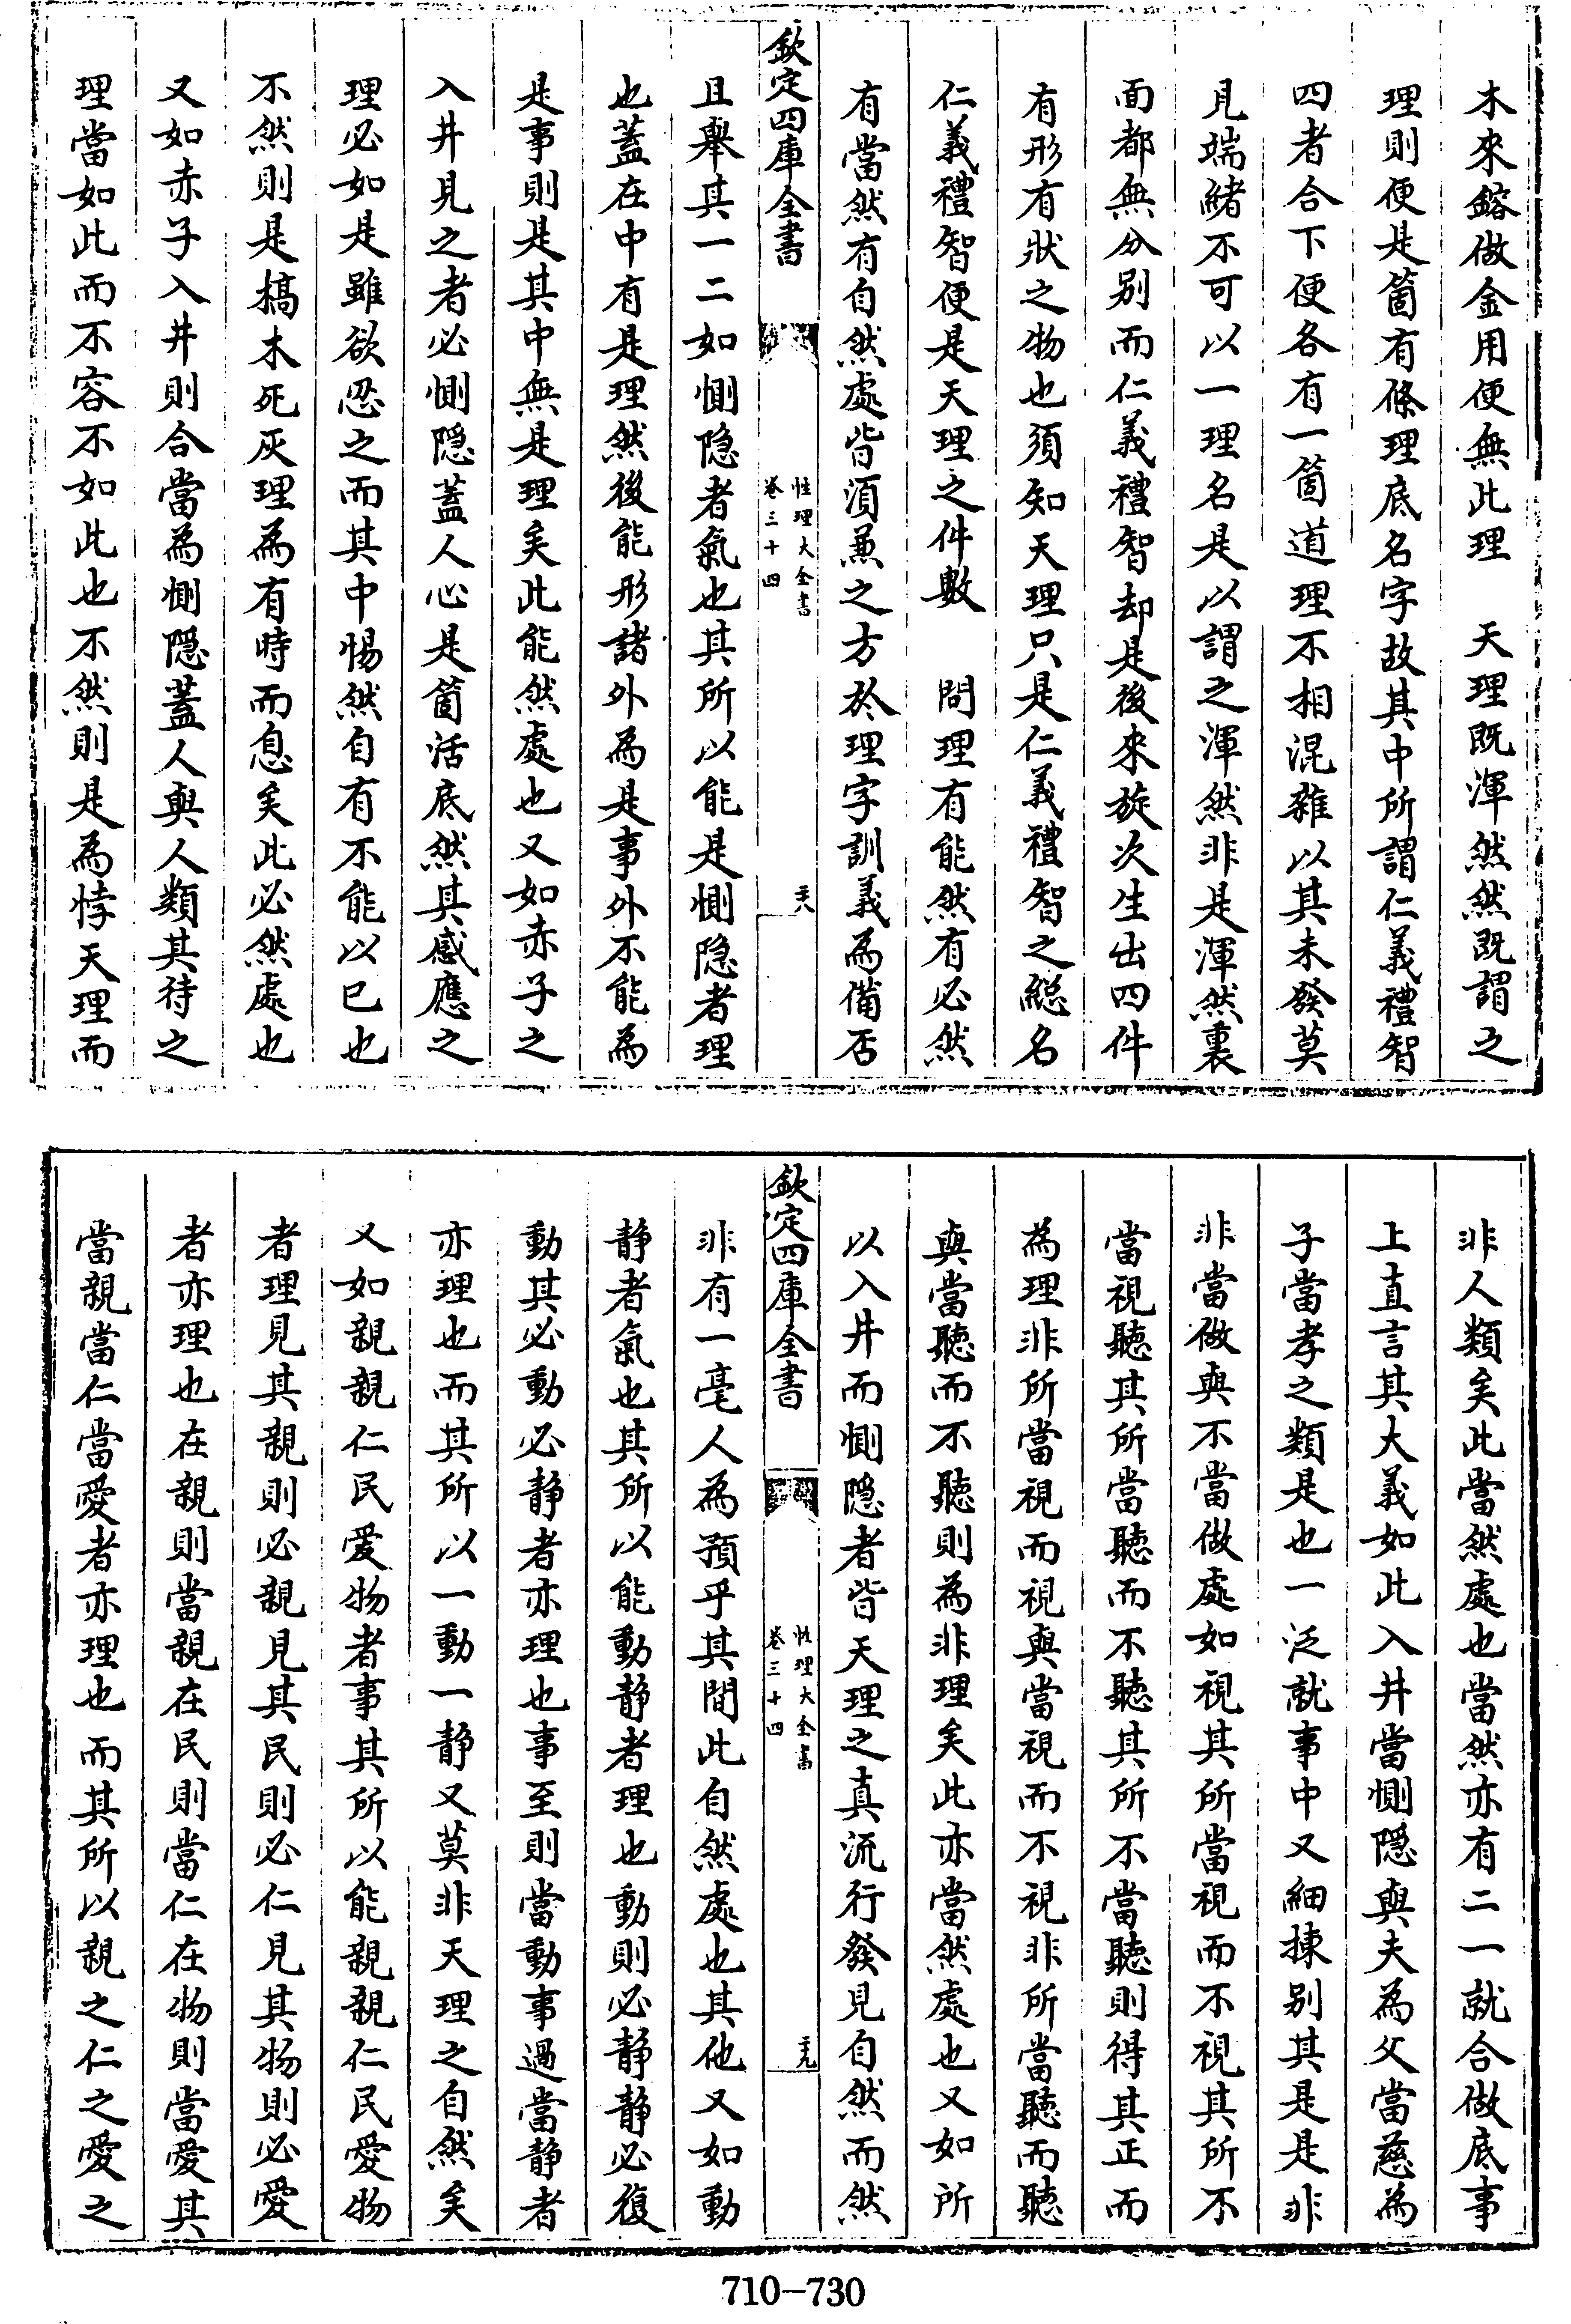 木來鎔做金用便無此理　天理既渾然然既謂之
理則便是箇有條理底名字故其中所謂仁義禮智
四者合下便各有一箇道理不相混雜以其未發莫
見端緒不可以一理名是以謂之渾然非是渾然裏
面都無分别而仁義禮智却是後來旋次生出四件
有形有狀之物也須知天理只是仁義禮智之総名
仁義禮智便是天理之件數　問理有能然有必然
有當然有自然處皆須兼之方於理字訓義為備否
欽定四庫全書
性理大全書
卷三十四
天
且舉其一二如惻隠者氣也其所以能是惻隠者理
也蓋在中有是理然後能形諸外為是事外不能為
是事則是其中無是理矣此能然處也又如赤子之
入井見之者必惻隠蓋人心是箇活底然其感應之
理必如是雖欲忍之而其中惕然自有不能以已也
不然則是槁木死灰理為有時而息矣此必然處也
又如赤子入井則合當為惻隠蓋人與人類其待之
理當如此而不容不如此也不然則是為悖天理而
非人類矣此當然處也當然亦有二一就合做底事
上直言其大義如此入井當惻隠與夫為父當慈為
子當孝之類是也一泛就事中又細揀别其是是非
非當做與不當做處如視其所當視而不視其所不
當視聽其所當聽而不聽其所不當聽則得其正而
為理非所當視而視與當視而不視非所當聽而聽
與當聽而不聽則為非理矣此亦當然處也又如所
以入井而惻隠者皆天理之真流行發見自然而然
欽定四庫全書
性理大全書
卷三十四
非有一毫人為預乎其間此自然處也其他又如動
静者氣也其所以能動静者理也動則必静静必復
動其必動必静者亦理也事至則當動事過當静者
亦理也而其所以一動一静又莫非天理之自然矣
又如親親仁民愛物者事其所以能親親仁民愛物
者理見其親則必親見其民則必仁見其物則必愛
者亦理也在親則當親在民則當仁在物則當愛其
當親當仁當愛者亦理也而其所以親之仁之愛之
710-730